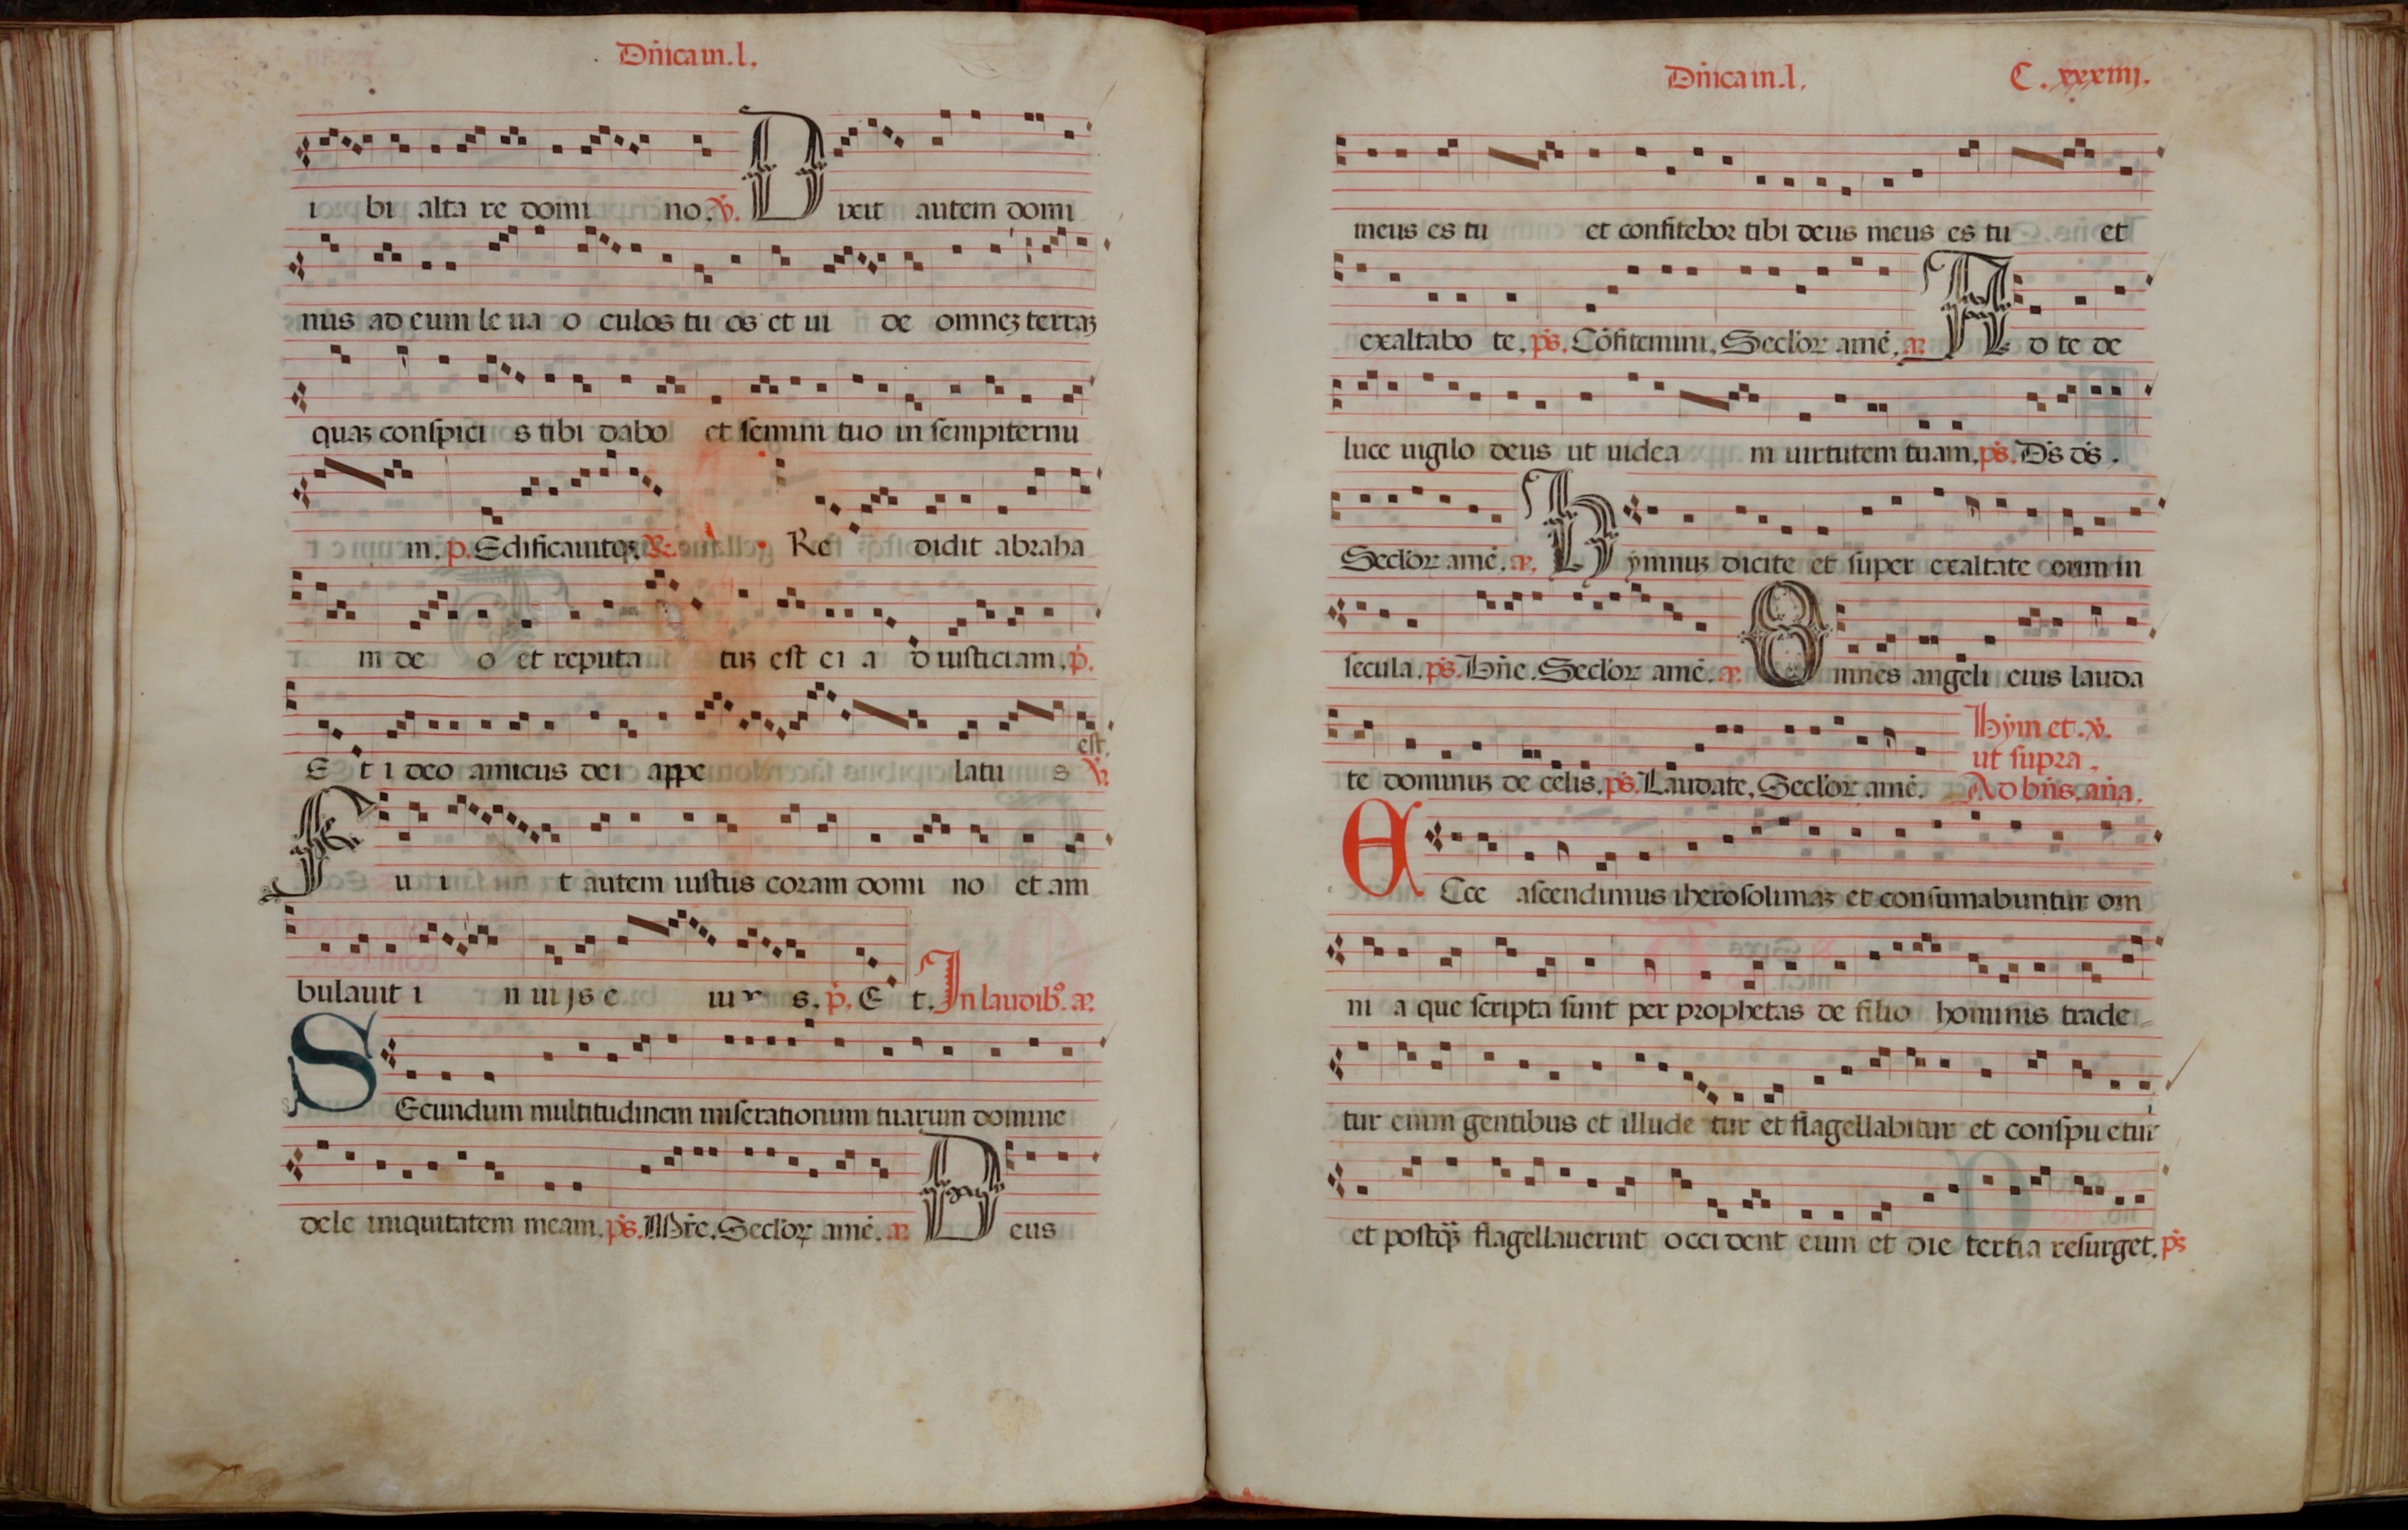 Dñica in.l.
i bi alta re domi no. ℣. D ixit autem domi
nus ad eum le ua o culos tu os et ui de omneȝ terraȝ
quaȝ conspici s tibi dabo et semini tuo in sempiternu
m. p. Edificauitqȝ. ℟. Re didit abraha
m de o et reputa tuȝ est ei a d iusticiam. p.
E t i deo amicus dei appe latu s est. ℣.
F u i t autem iustus coram domi no et am
bulauit i n uijs e iu s. p. E t. In laudibꝰ. añ.
SEcundum multitudinem miserationum tuarum domine
dele iniquitatem meam. ps. Mr̄e. Seclor̄ amē. añ. D eus
Dñica in.l. C.xxxiiij.
meus es tu et confitebor tibi deus meus es tu et
exaltabo te. ps. Cōfitemini. Seclor̄ amē. añ. A d te de
luce uigilo deus ut uidea m uirtutem tuam. ps. Ds ds.
Seclor̄ amē. añ. H ymnuȝ dicite et super exaltate eum in
secula. ps. Bn̄e. Seclor̄ amē. añ. O mnes angeli eius lauda
te dominuȝ de celis. ps. Laudate. Seclor̄ amē. Hym et. ℣.
ut supra.
Ad bn̄s. aña.
ECce ascendimus iherosolimaȝ et consumabuntur om
ni a que scripta sunt per prophetas de filio hominis trade
tur enim gentibus et illude tur et flagellabitur et conspu etur
et postqȝ flagellauerint occi dent eum et die tertia resurget. ps